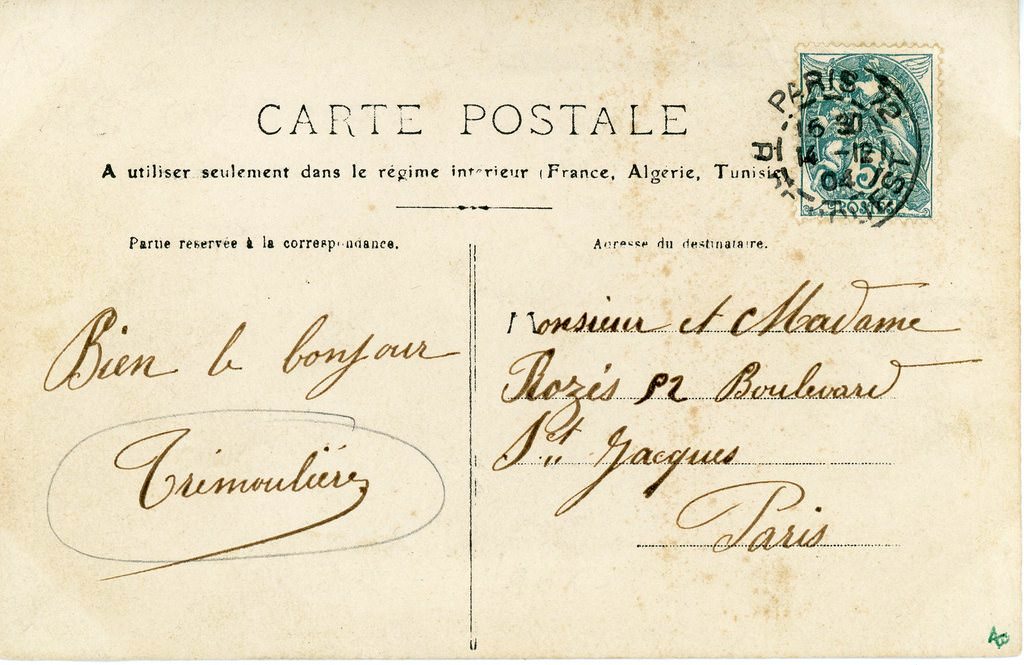 CARTE POSTALE
A utiliser seulement dans le régime intérieur (France, Algérie, Tunisie
Partie réservée à la correspondance.
Adresse du destinataire.
PARIS 12
5 30
4 -12
04
POSTES
Bien le bonjour
Trémoulière
Monsieur et Madame
Rozés 82 Boulevard
St Jacques
Paris
AB